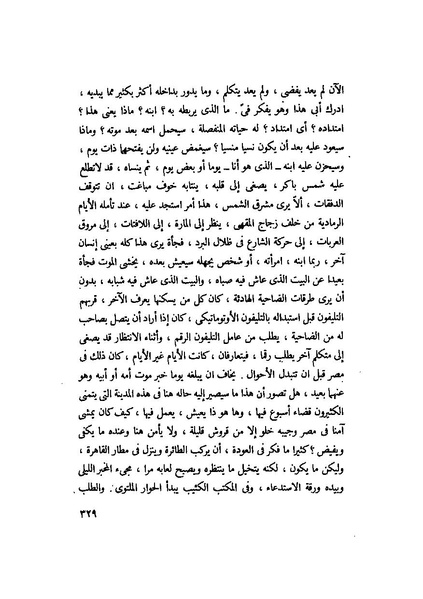 الآن لم يعد يفضى ، ولم يعد يتكلم ، وما يدور بداخله أكثر بكثير مما يبديه ،
ادرك أبى هذا وهو يفكر فىّ . ما الذى يربطه به ؟ ابنه ؟ ماذا يعنى هذا ؟
امتداده ؟ أى امتداد ؟ له حياته المنفصلة ، سيحمل اسمه بعد موته ؟ وماذا
سيعود عليه بعد أن يكون نسيا منسيا ؟ سيغمض عينيه ولن يفتحهما ذات يوم ،
وسيحزن عليه ابنه _ الذى هو أنا _ يوما أو بعض يوم ، ثم ينساه ، قد لاتطلع
عليه شمس باكر ، يصغى إلى قلبه ، ينتابه خوف مباغت ، ان تتوقف
الدفقات ، ألا يرى مشرق الشمس ، هذا أمر استجد عليه ، عند تأمله الأيام
الرمادية من خلف زجاج المقهى ، ينظر إلى المارة ، إلى اللافتات ، إلى مروق
العربات ، إلى حركة الشارع فى ظلال البرد ، فجأة يرى هذا كله بعينى إنسان
آخر ، ربما ابنه ، امرأته ، أو شخص يجهله سيعيش بعده ، يخشى الموت فجأة
بعيدا عن البيت الذى عاش فيه صباه ، والبيت الذى عاش فيه شبابه ، بدون
أن يرى طرقات الضاحية الهادئة ، كان كل من يسكنها يعرف الآخر ، قربهم
التليفون قبل استبداله بالتليفون الأوتوماتيكى ، كان إذا أراد أن يتصل بصاحب
له من الضاحية ، يطلب من عامل التليفون الرقم ، وأثناء الانتظار قد يصغى
إلى متكلم آخر يطلب رقما ، فيتعارفان ، كانت الأيام غير الأيام ، كان ذلك فى
مصر قبل ان تتبدل الأحوال . يخاف ان يبلغه يوما خبر موت أمه أو أبيه وهو
عنهما بعيد ، هل تصور أن هذا ما سيصير إليه حاله هنا فى هذه المدينة التى يتمنى
الكثيرون قضاء أسبوع فيها ، وها هو ذا يعيش ، يعمل فيها ، كيف كان يمشى
آمنا فى مصر وجيبه خلو إلا من قروش قليلة ، ولا يأمن هنا وعنده ما يكفى
ويفيض ؟ كثيرا ما فكر فى العودة ، أن يركب الطائرة وينزل فى مطار القاهرة ،
وليكن ما يكون ، لكنه يتخيل ما ينتظره ويصبح لعابه مرا ، مجىء المخبر الليلى
وبيده ورقة الاستدعاء ، وفى المكتب الكئيب يبدأ الحوار الملتوى . والطلب
٣٢٩